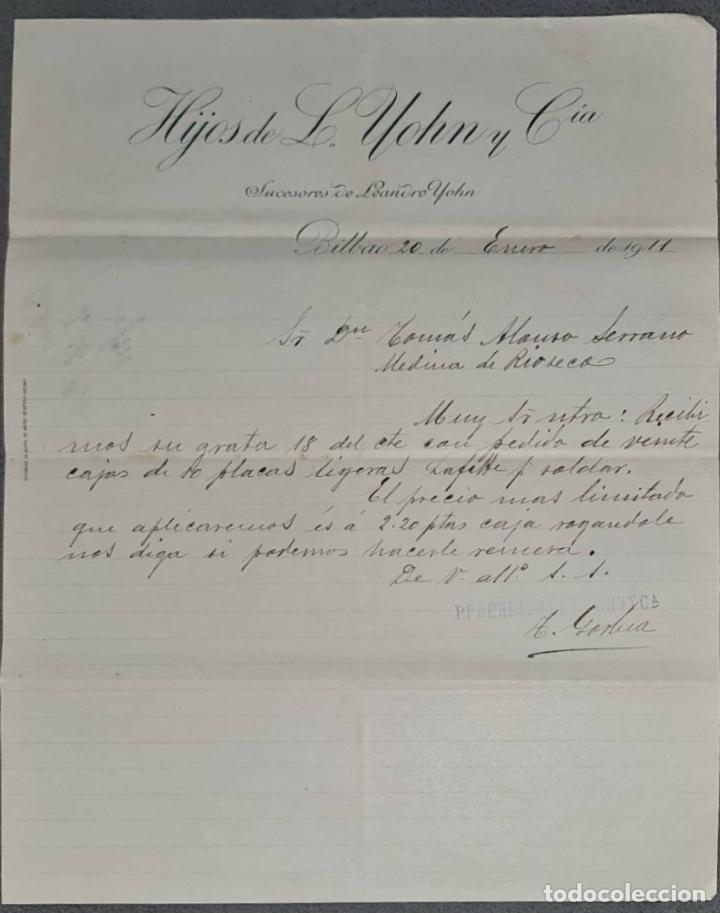 Hijos de L. Yohn y Cía
Sucesores de Leandro Yohn
Bilbao 20 de Enero de 1911
Sr Dn Tomás Alonso Serrano
Medina de Rioseco
Muy Sr ntro: Recibi
mos su grata 18 del cte con pedido de veinte
cajas de 10 placas ligeras Lafitte p soldar.
El precio mas limitado
que aplicaremos és á 2.20 ptas caja rogandole
nos diga si podemos hacerle remesa.
De V. atto. s. s.
todocoleccion.net